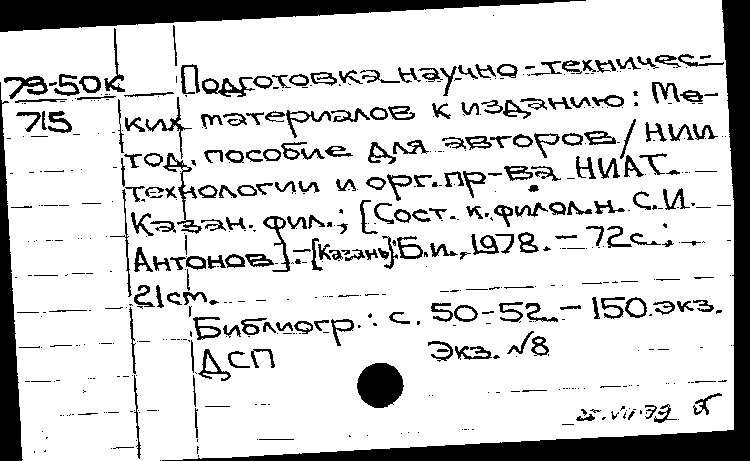 79-50К Подготовка научно-техничес-
715 ких материалов к изданию: Ме-
тод. пособие для авторов / НИИ
технологии и орг. пр-ва НИАТ.
Казан. фил.; [Сост. к.филол.н. С.И.
Антонов]. - [Казань]: Б.и., 1978. - 72с.;
21cm.
Библиогр.: с. 50-52. - 150 экз.
ДСП Экз. №8
25.VII.79